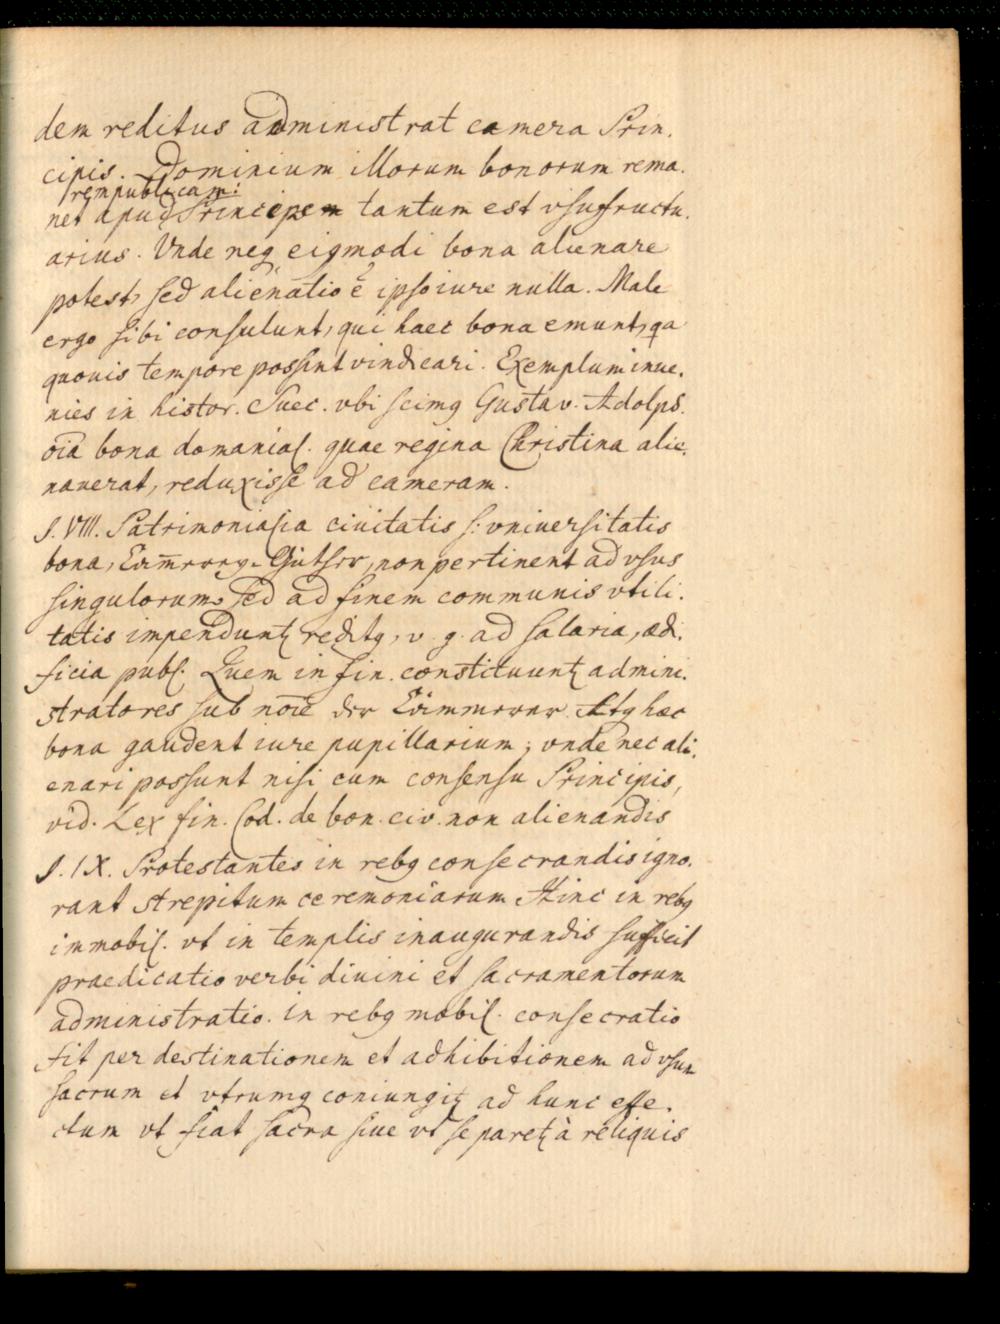 dem reditus administrat camera Prin.
cipis. Dominium illorum bonorum rema.
rempublicam:
net apud Principem tantum est vsufructu.
arius. Vnde neq eigmodi bona alienare
potest, sed alienatio ē ipso iure nulla. Male
ergo sibi consulunt, qui haec bona emunt, qa
quovis tempore possint vindicari. Exemplum inve.
nies in histor. Suec. vbi scimq Gustav. Adolph.
oīa bona domanial. quae regina Christina alie.
naverat, reduxisse ad cameram.
§. VIII. Patrimonialia civitatis s: vniversitatis
bona, Cäm̄erey-Güther, non pertinent ad vsus
singulorum, sed ad finem communis vtili.
tatis impendunt reditq, v. g. ad salaria, ædi.
ficia publ. Quem in fin. constituunt admini.
stratores sub noīe der Cämmerer. Atq hæc
bona gaudent iure pupillarium; vnde nec ali.
enari possunt nisi cum consensu Principis,
vid. Lex fin. Cod. de bon. civ. non alienandis
§. IX. Protestantes in rebq consecrandis igno.
rant strepitum ceremoniarum Hinc in rebq
immobil. vt in templis inaugurandis sufficit
praedicatio verbi divini et sacramentorum
administratio. in rebq mobil. consecratio
fit per destinationem et adhibitionem ad vsum
sacrum et vtrumq coniungit ad hunc effe.
ctum vt fiat sacra sive vt separet à reliquis